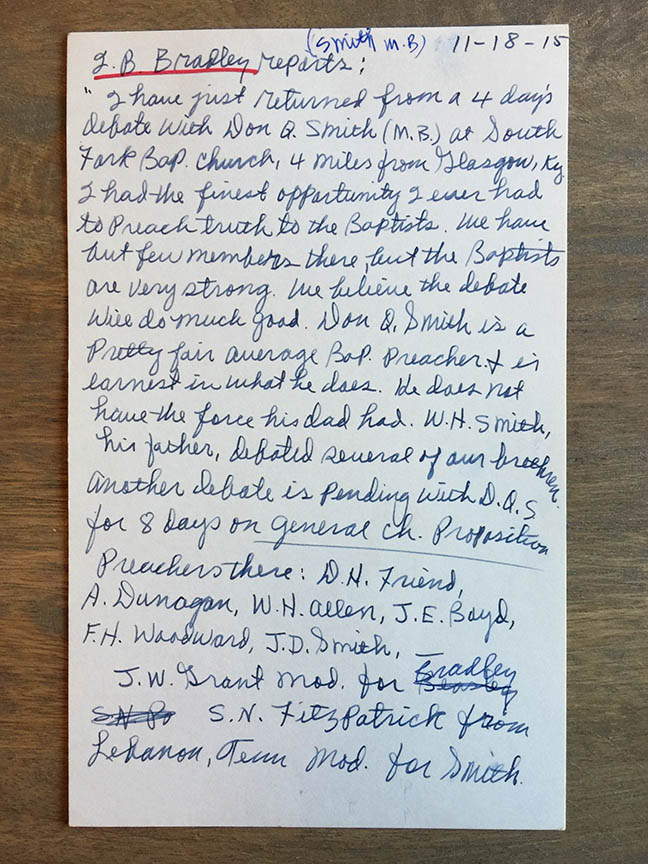 (Smith M.B) 11-18-15
I. B. Bradley reports:
" I have just returned from a 4 day's
debate with Don Q. Smith (M.B.) at South
Fork Bap. church, 4 miles from Glasgow, Ky
I had the finest opportunity I ever had
to Preach truth to the Baptists. We have
but few members there, but the Baptists
are very strong. We believe the debate
will do much good. Don Q. Smith is a
Pretty fair average Bap. Preacher & is
earnest in what he does. He does not
have the force his dad had. W.H. Smith,
his father, debated several of our brethren.
Another debate is pending with D.Q.S.
for 8 days on general ch. Proposition
Preachers there: D.H. Friend,
A. Dunagan, W.H. Allen, J.E. Boyd,
F.H. Woodward, J.D. Smith,
J.W. Grant Mod. for Bradley
S.N. Fitzpatrick from
Lebanon, Tenn Mod. for Smith.